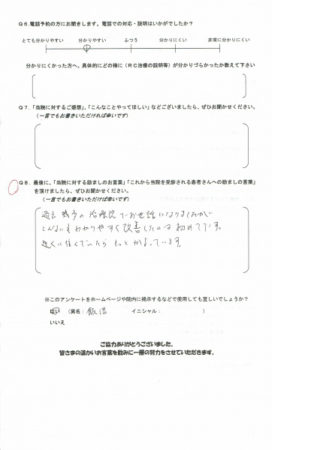 Q６.電話予約の方にお聞きします。電話での対応・説明はいかがでしたか？
とても分かりやすい　分かりやすい　ふつう　分かりにくい　非常に分かりにくい
分かりにくかった方へ。具体的にどの様に（ＲＣ治療の説明等）が分かりづらかったか教えて下さい
Q７.「当院に対するご感想」、「こんなことやってほしい」などございましたら、ぜひお聞かせください。
（一言でもお書きいただければ幸いです）
Q８.最後に、「当院に対する励ましのお言葉」「これから当院を受診される患者さんへの励ましの言葉」
を頂けましたら、ぜひお聞かせください。
（一言でもお書きいただければ幸いです）
過去 の治療院でお世話になりましたが
こんなにもわかりやすく改善したのは初めてです。
近くに住んでいたら もっと います
※このアンケートをホームページや院内に掲示するなどで使用しても宜しいでしょうか？
はい（署名： イニシャル： ）
いいえ
ご協力ありがとうございました。
皆さまの温かいお言葉を励みに一層の努力をさせていただきます。